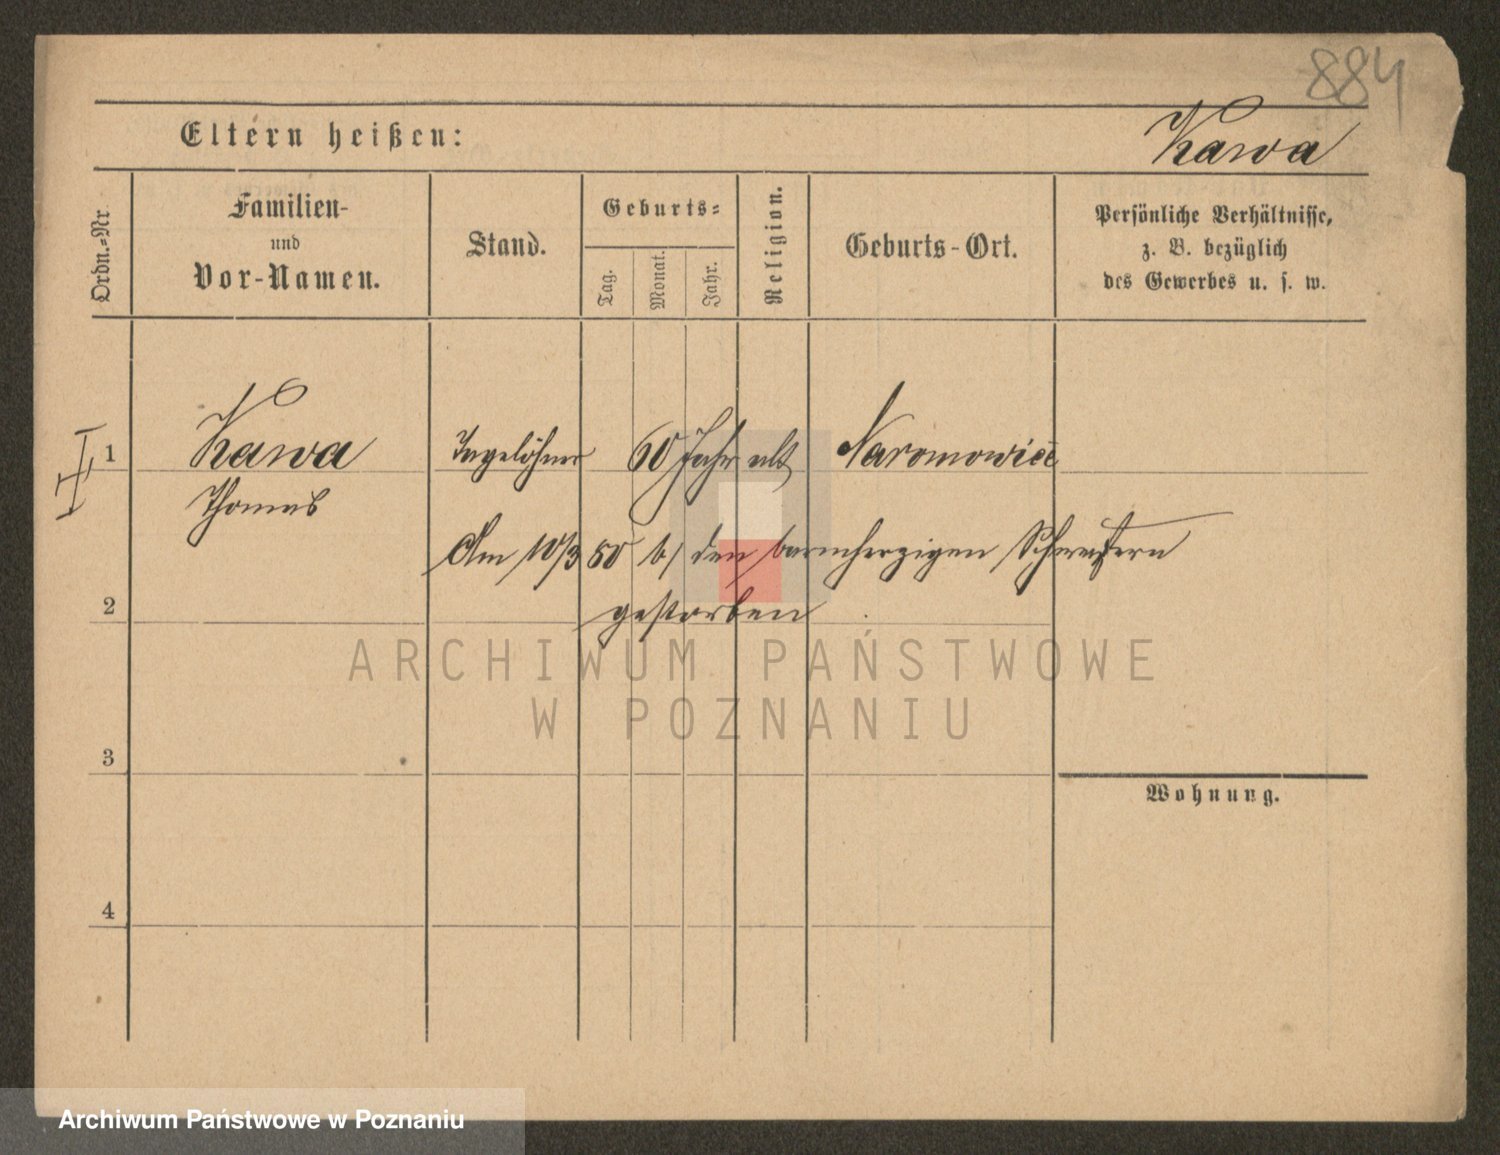 884
Eltern heißen:
Kawa
Ordn.=Nr.
Familien-
und
Vor-Namen.
Stand.
Geburts=
Tag.
Monat.
Jahr.
Religion.
Geburts-Ort.
Persönliche Verhältnisse,
z. B. bezüglich
des Gewerbes u. s. w.
1 Kawa Tagelöhner 60 Jahr alt Naromowice
Thomas
Am 10/3 80 b/ den barmherzigen Schwestern
2 gestorben
ARCHIWUM PAŃSTWOWE
W POZNANIU
3
Wohnung.
4
Archiwum Państwowe w Poznaniu